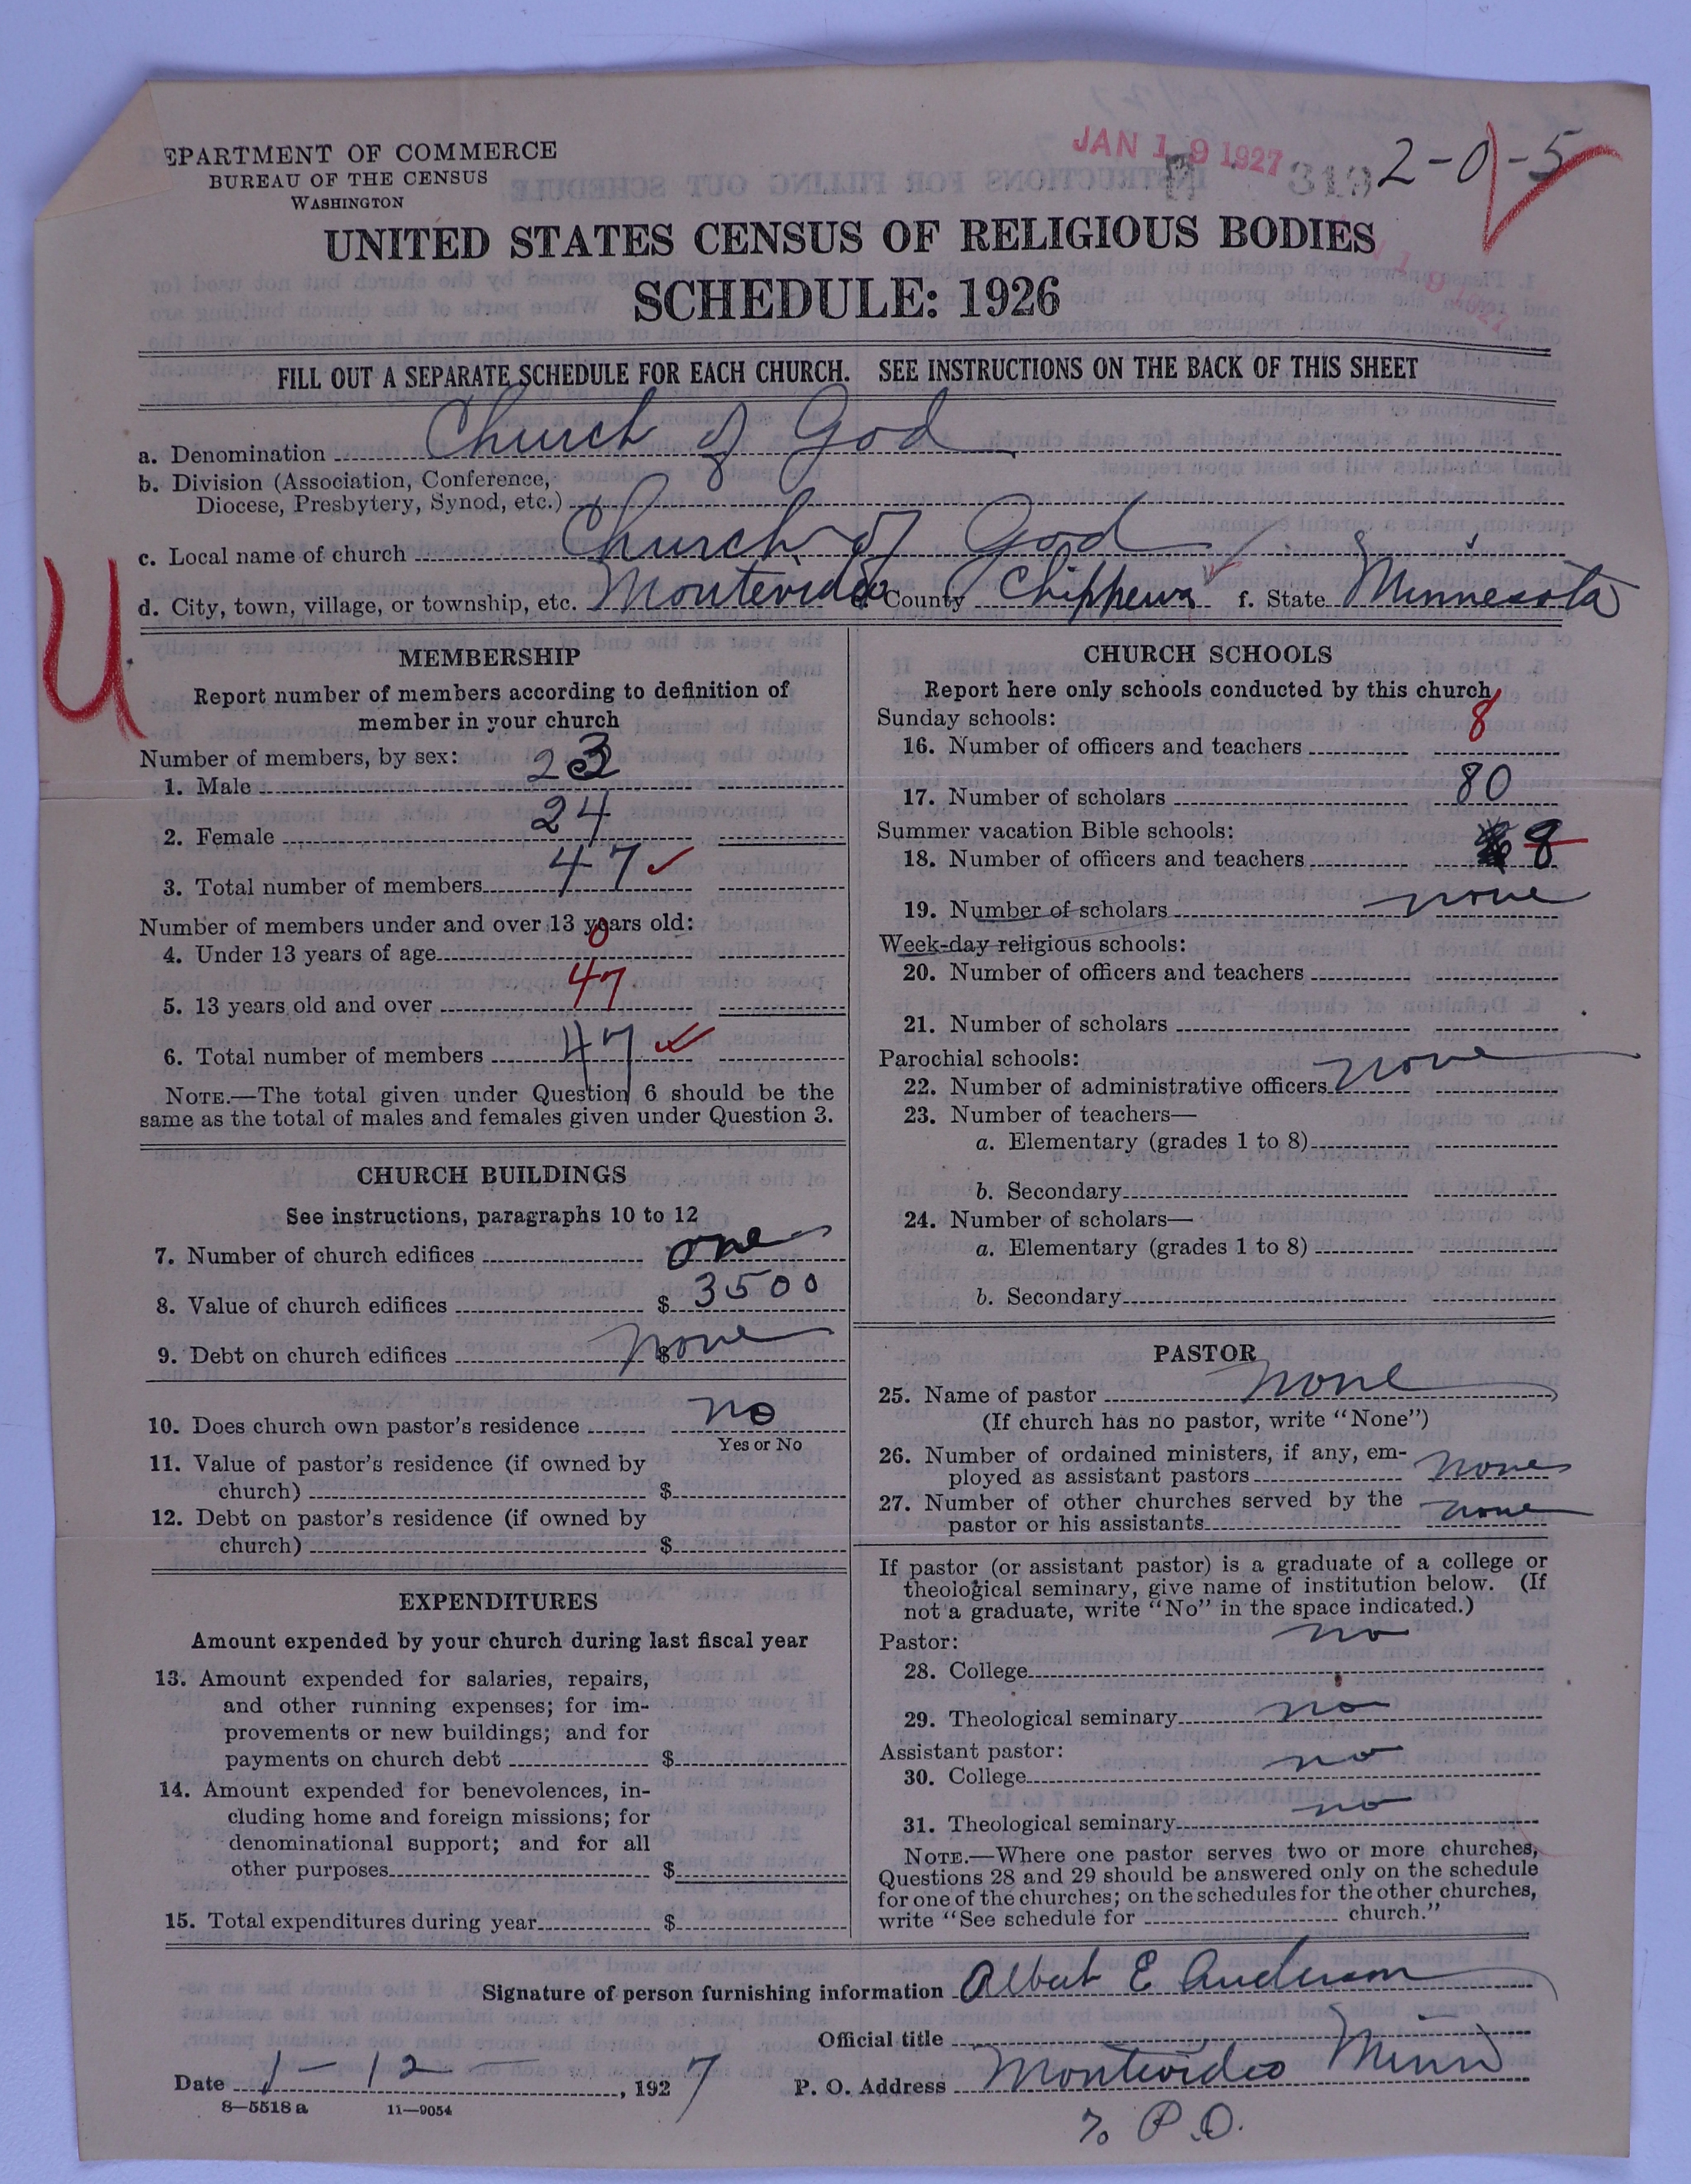 EPARTMENT OF COMMERCE
BUREAU OF THE CENSUS
WASHINGTON
JAN 19 1927
319
2-0-5
UNITED STATES CENSUS OF RELIGIOUS BODIES
SCHEDULE: 1926
FILL OUT A SEPARATE SCHEDULE FOR EACH CHURCH. SEE INSTRUCTIONS ON THE BACK OF THIS SHEET
a. Denomination Church of God
b. Division (Association, Conference,
Diocese, Presbytery, Synod, etc.)
c. Local name of church Church of God
d. City, town, village, or township, etc. Montevideo e. County Chippewa f. State Minnesota
U
MEMBERSHIP
Report number of members according to definition of
member in your church
Number of members, by sex:
1. Male 23
2. Female 24
3. Total number of members 47 ✓
Number of members under and over 13 years old:
4. Under 13 years of age 0
5. 13 years old and over 47
6. Total number of members 47 ✓
NOTE.—The total given under Question 6 should be the
same as the total of males and females given under Question 3.
CHURCH BUILDINGS
See instructions, paragraphs 10 to 12
7. Number of church edifices one
8. Value of church edifices $ 3500
9. Debt on church edifices $ none
10. Does church own pastor's residence no
Yes or No
11. Value of pastor's residence (if owned by
church) $
12. Debt on pastor's residence (if owned by
church) $
EXPENDITURES
Amount expended by your church during last fiscal year
13. Amount expended for salaries, repairs,
and other running expenses; for im-
provements or new buildings; and for
payments on church debt $
14. Amount expended for benevolences, in-
cluding home and foreign missions; for
denominational support; and for all
other purposes $
15. Total expenditures during year $
CHURCH SCHOOLS
Report here only schools conducted by this church
Sunday schools:
16. Number of officers and teachers 8
17. Number of scholars 80
Summer vacation Bible schools:
18. Number of officers and teachers 8
19. Number of scholars none
Week-day religious schools:
20. Number of officers and teachers
21. Number of scholars
Parochial schools:
22. Number of administrative officers none
23. Number of teachers—
a. Elementary (grades 1 to 8)
b. Secondary
24. Number of scholars—
a. Elementary (grades 1 to 8)
b. Secondary
PASTOR
25. Name of pastor None
(If church has no pastor, write "None")
26. Number of ordained ministers, if any, em-
ployed as assistant pastors none
27. Number of other churches served by the
pastor or his assistants none
If pastor (or assistant pastor) is a graduate of a college or
theological seminary, give name of institution below. (If
not a graduate, write "No" in the space indicated.)
Pastor:
28. College no
29. Theological seminary no
Assistant pastor:
30. College no
31. Theological seminary no
NOTE.—Where one pastor serves two or more churches,
Questions 28 and 29 should be answered only on the schedule
for one of the churches; on the schedules for the other churches,
write "See schedule for church."
Signature of person furnishing information Albert E Anderson
Official title
Date 1-12, 1927 P. O. Address Montevideo Minn
8—5518 a 11—9054
% P.O.